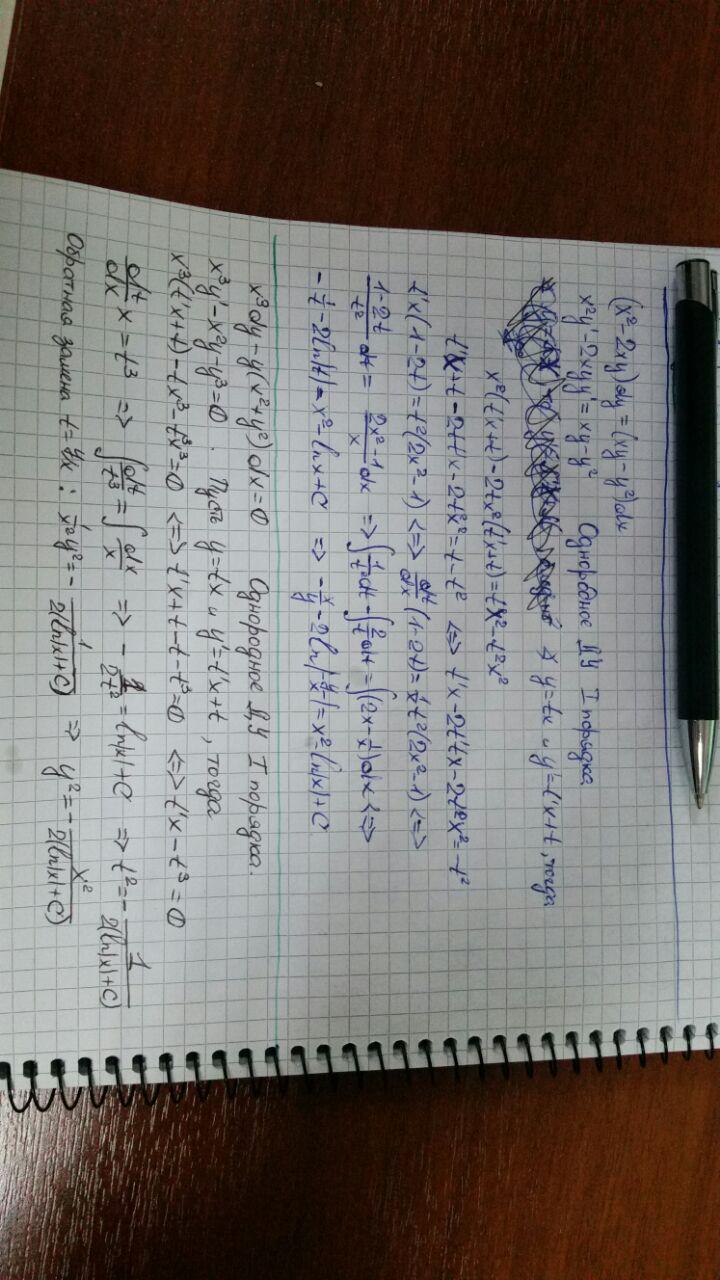 (x²-2xy)dy = (xy-y²)dx
x²y'-2xyy' = xy-y² Однородное ДУ I порядка
y=tx и y'=t'x+t, тогда
x²(t'x+t)-2tx²(t'x+t)=tx²-t²x²
t'x+t-2tt'x-2t²x²=t-t² <=> t'x-2tt'x-2t²x²=-t²
t'x(1-2t)=t²(2x²-1) <=> dt/dx (1-2t)=1/x t²(2x²-1) <=>
(1-2t)/t² dt = (2x²-1)/x dx => ∫1/t² dt - ∫2/t dt = ∫(2x-1/x)dx <=>
-1/t-2ln|t|=x²-ln x+C => -x/y-2ln|y/x|=x²-ln|x|+C
x³dy-y(x²+y²)dx=0 Однородное ДУ I порядка.
x³y'-x²y-y³=0. Пусть y=tx и y'=t'x+t, тогда
x³(t'x+t)-tx³-t³x³=0 <=> t'x+t-t-t³=0 <=> t'x-t³=0
dt/dx x=t³ => ∫dt/t³=∫dx/x => -1/2t²=ln|x|+C => t²=-1/2(ln|x|+C)
Обратная замена t=y/x: 1/x² y²=-1/2(ln|x|+C) => y²=-x²/2(ln|x|+C)